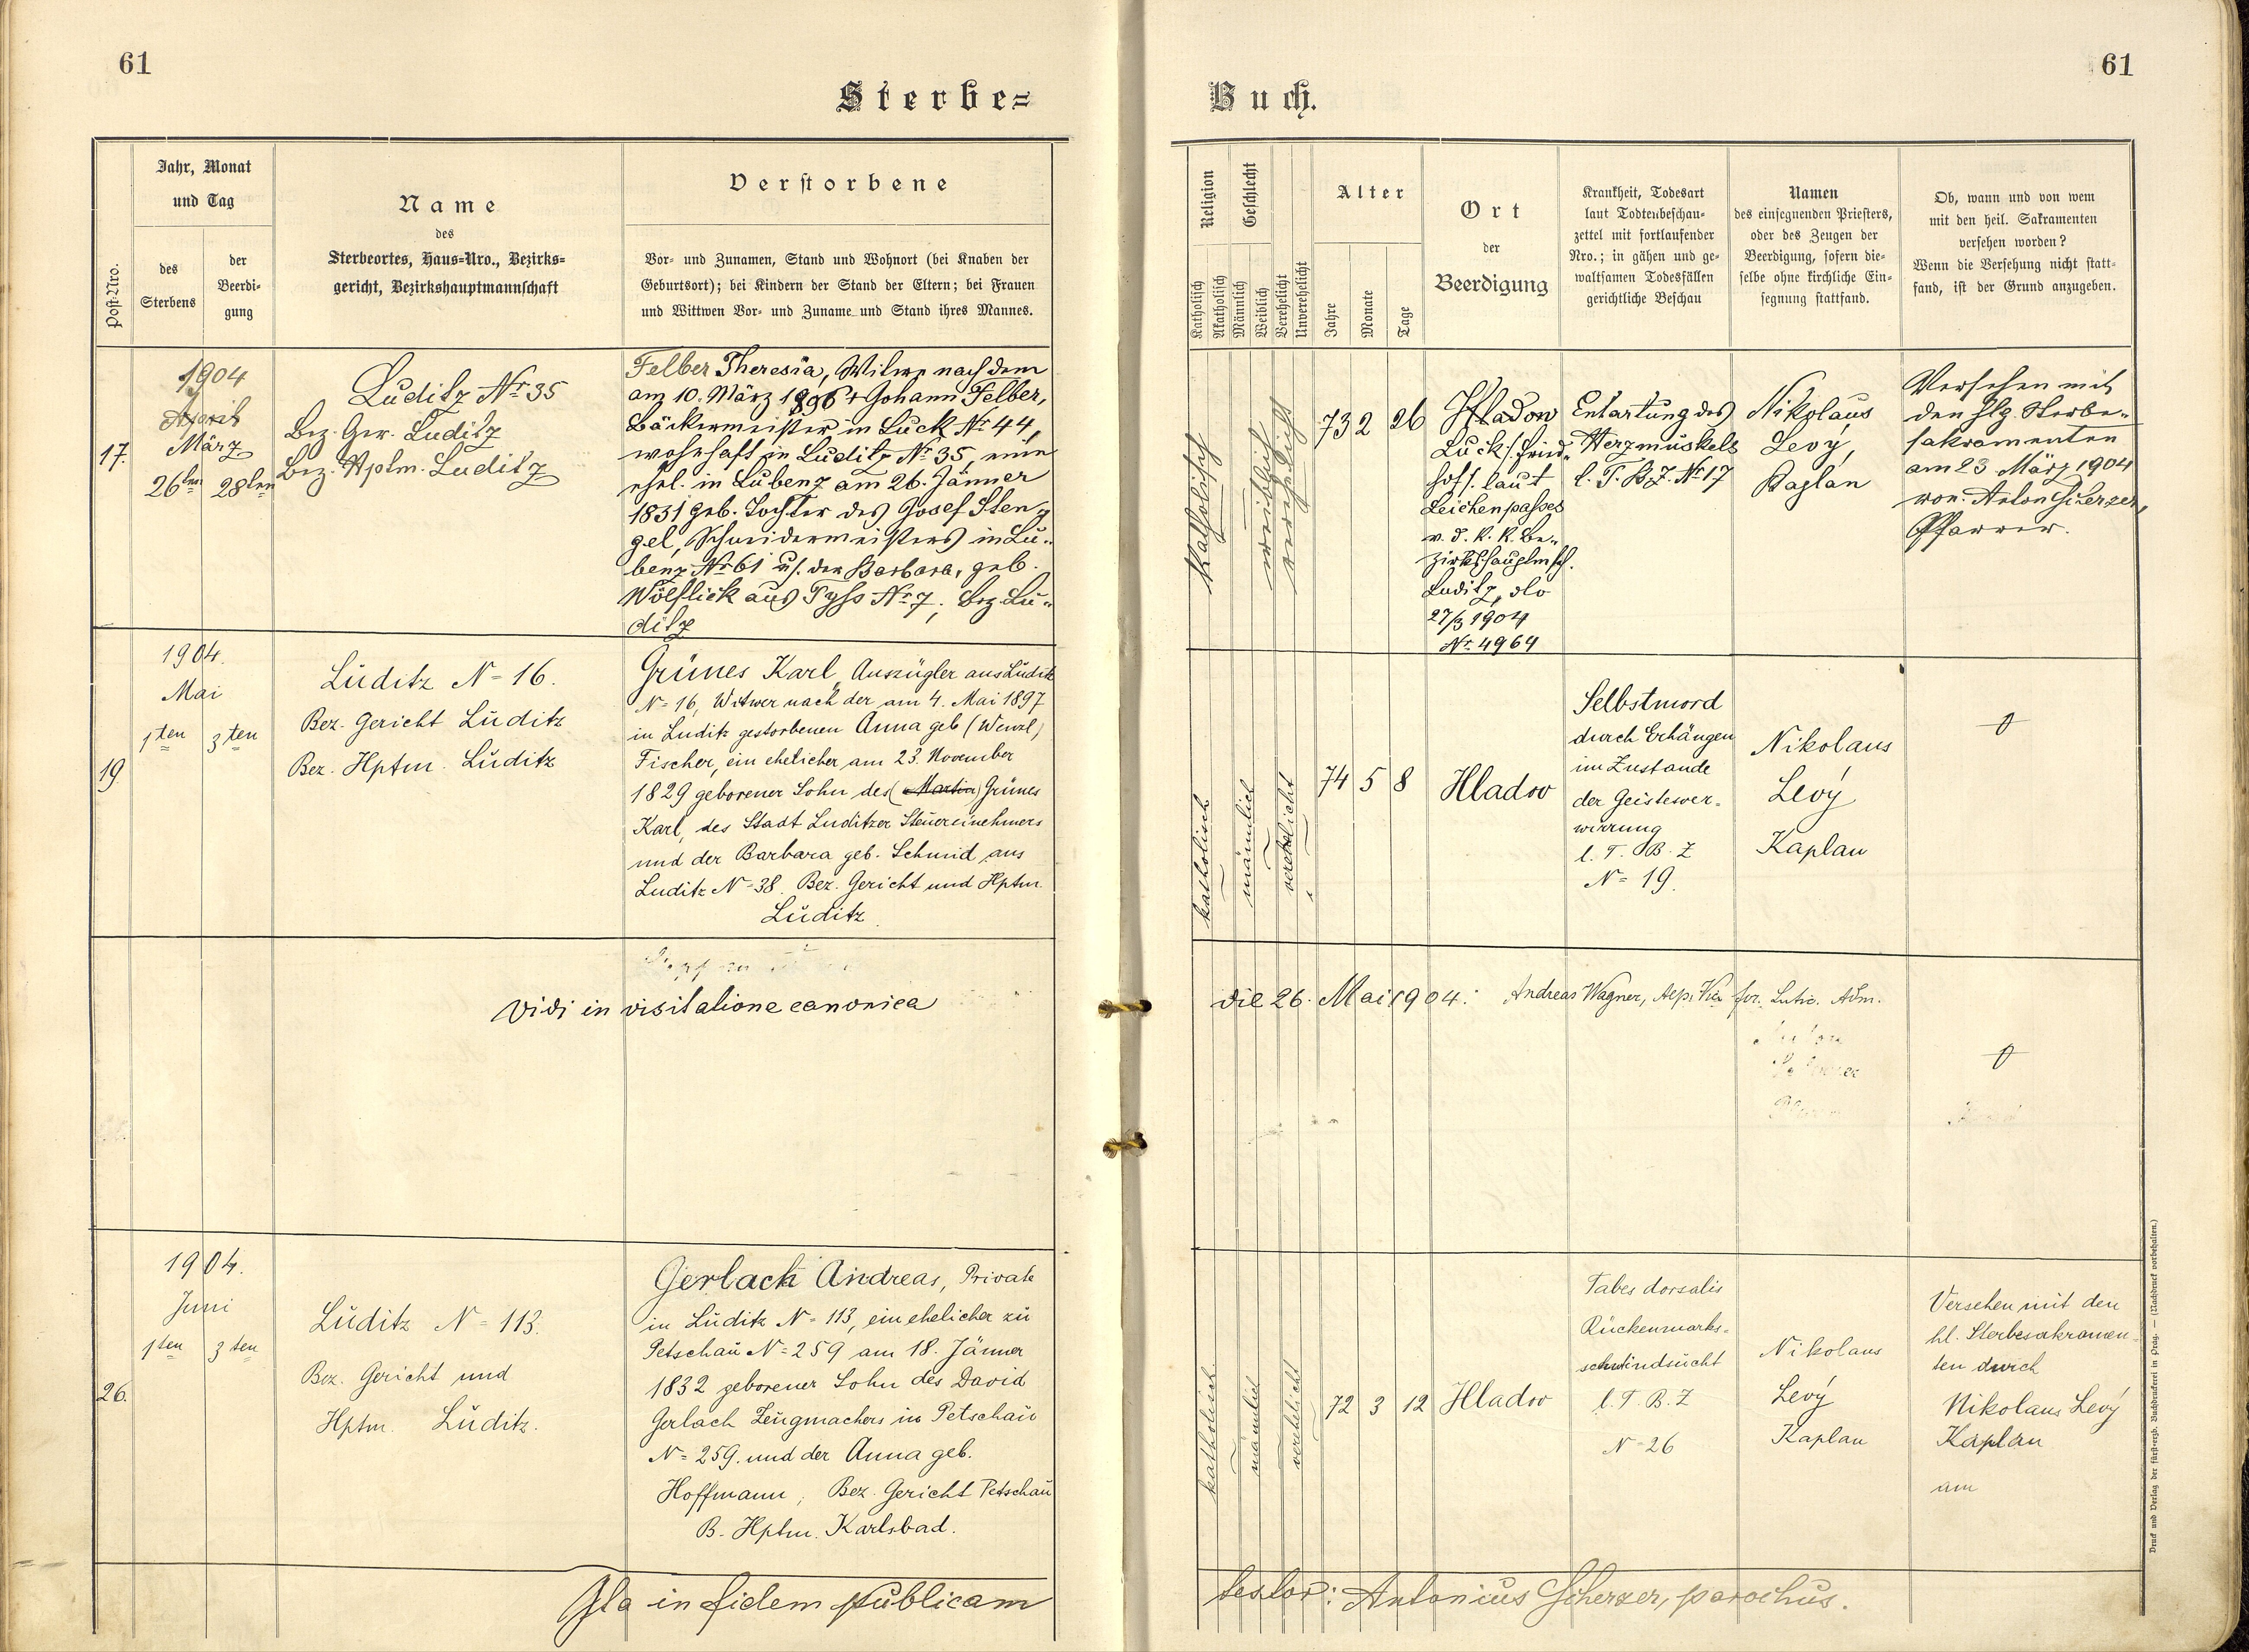 61
61
Sterbe=
Buch.
Post-Nro.
Jahr, Monat
und Tag
des
Sterbens
der
Beerdi-
gung
Name
des
Sterbeortes, Haus-Nro., Bezirks=
gericht, Bezirkshauptmannschaft
Verstorbene
Vor- und Zunamen, Stand und Wohnort (bei Knaben der
Geburtsort); bei Kindern der Stand der Eltern; bei Frauen
und Wittwen Vor- und Zuname und Stand ihres Mannes.
Religion
Katholisch
Akatholisch
Geschlecht
Männlich
Weiblich
Verehelicht
Unverehelicht
Alter
Jahre
Monate
Tage
Ort
der
Beerdigung
Krankheit, Todesart
laut Todtenbeschau-
zettel mit fortlaufender
Nro.; in gähen und ge-
waltsamen Todesfällen
gerichtliche Beschau
Namen
des einsegnenden Priesters,
oder des Zeugen der
Beerdigung, sofern die-
selbe ohne kirchliche Ein-
segnung stattfand.
Ob, wann und von wem
mit den heil. Sakramenten
versehen worden?
Wenn die Versehung nicht statt-
fand, ist der Grund anzugeben.
17.
1904
April
März
26ten 28ten
Luditz Nr 35
Bez. Ger. Luditz
Bez. Hptm. Luditz
Felber Theresia, Witwe nach dem
am 10. März 1896 + Johann Felber,
Bäckermeister in Luck Nr 44,
wohnhaft in Luditz Nr 35, eine
ehel. in Lubenz am 26. Jänner
1831 geb. Tochter des Josef Sten
gel, Schneidermeisters in Lu-
benz Nr 61 u. der Barbara, geb.
Wölflick aus Tyss Nr 7, Bez. Lu-
ditz
katholisch
weiblich
verehelicht
73 2 26
Hladow
Luck (: Fried-
hof :) laut
Leichenpasses
v. d. k. k. Be-
zirkshauptmsch.
Luditz, dto
27/3 1904
Nr. 4964
Entartung des
Herzmuskels
l. T. B. Z. Nr 17
Nikolaus
Levý,
Kaplan
Versehen mit
den hlg. Sterbe-
sakramenten
am 23 März 1904
von Anton Scherzer,
Pfarrer.
19.
1904.
Mai
1ten 3ten
Luditz N= 16.
Bez. Gericht Luditz
Bez. Hptm. Luditz
Grünes Karl, Auszügler aus Luditz
N= 16, Witwer nach der am 4. Mai 1897
in Luditz gestorbenen Anna geb (Wenzl)
Fischer, ein ehelicher am 23. November
1829 geborener Sohn des (Martin) Grünes
Karl, des Stadt Luditzer Steuereinehmers
und der Barbara geb. Schmid aus
Luditz N= 38. Bez. Gericht und Hptm.
Luditz.
katholisch
männlich
verehelicht
74 5 8
Hladov
Selbstmord
durch Erhängen
im Zustande
der Geistesver-
wirrung
l. T. B. Z
N= 19.
Nikolaus
Levý
Kaplan
Vidi in visitatione canonica
die 26. Mai 1904.
Andreas Wagner,
26.
1904.
Juni
1ten 3ten
Luditz N= 113.
Bez. Gericht und
Hptm. Luditz.
Gerlach Andreas, Private
in Luditz N= 113, ein ehelicher zu
Petschau N= 259 am 18. Jänner
1832 geborener Sohn des David
Gerlach Zeugmachers in Petschau
N= 259. und der Anna geb.
Hoffmann, Bez. Gericht Petschau
B. Hptm. Karlsbad.
katholisch
männlich
verehelicht
72 3 12
Hladov
Tabes dorsalis
Rückenmarks-
schwindsucht
l. T. B. Z
N= 26
Nikolaus
Levý
Kaplan
Versehen mit den
hl. Sterbesakramen-
ten durch
Nikolaus Levý
Kaplan
am
Ita in fidem publicam
testor: Antonius Scherzer, parochus.
Druck und Verlag der fürst-erzb. Buchdruckerei in Prag. — (Nachdruck vorbehalten.)